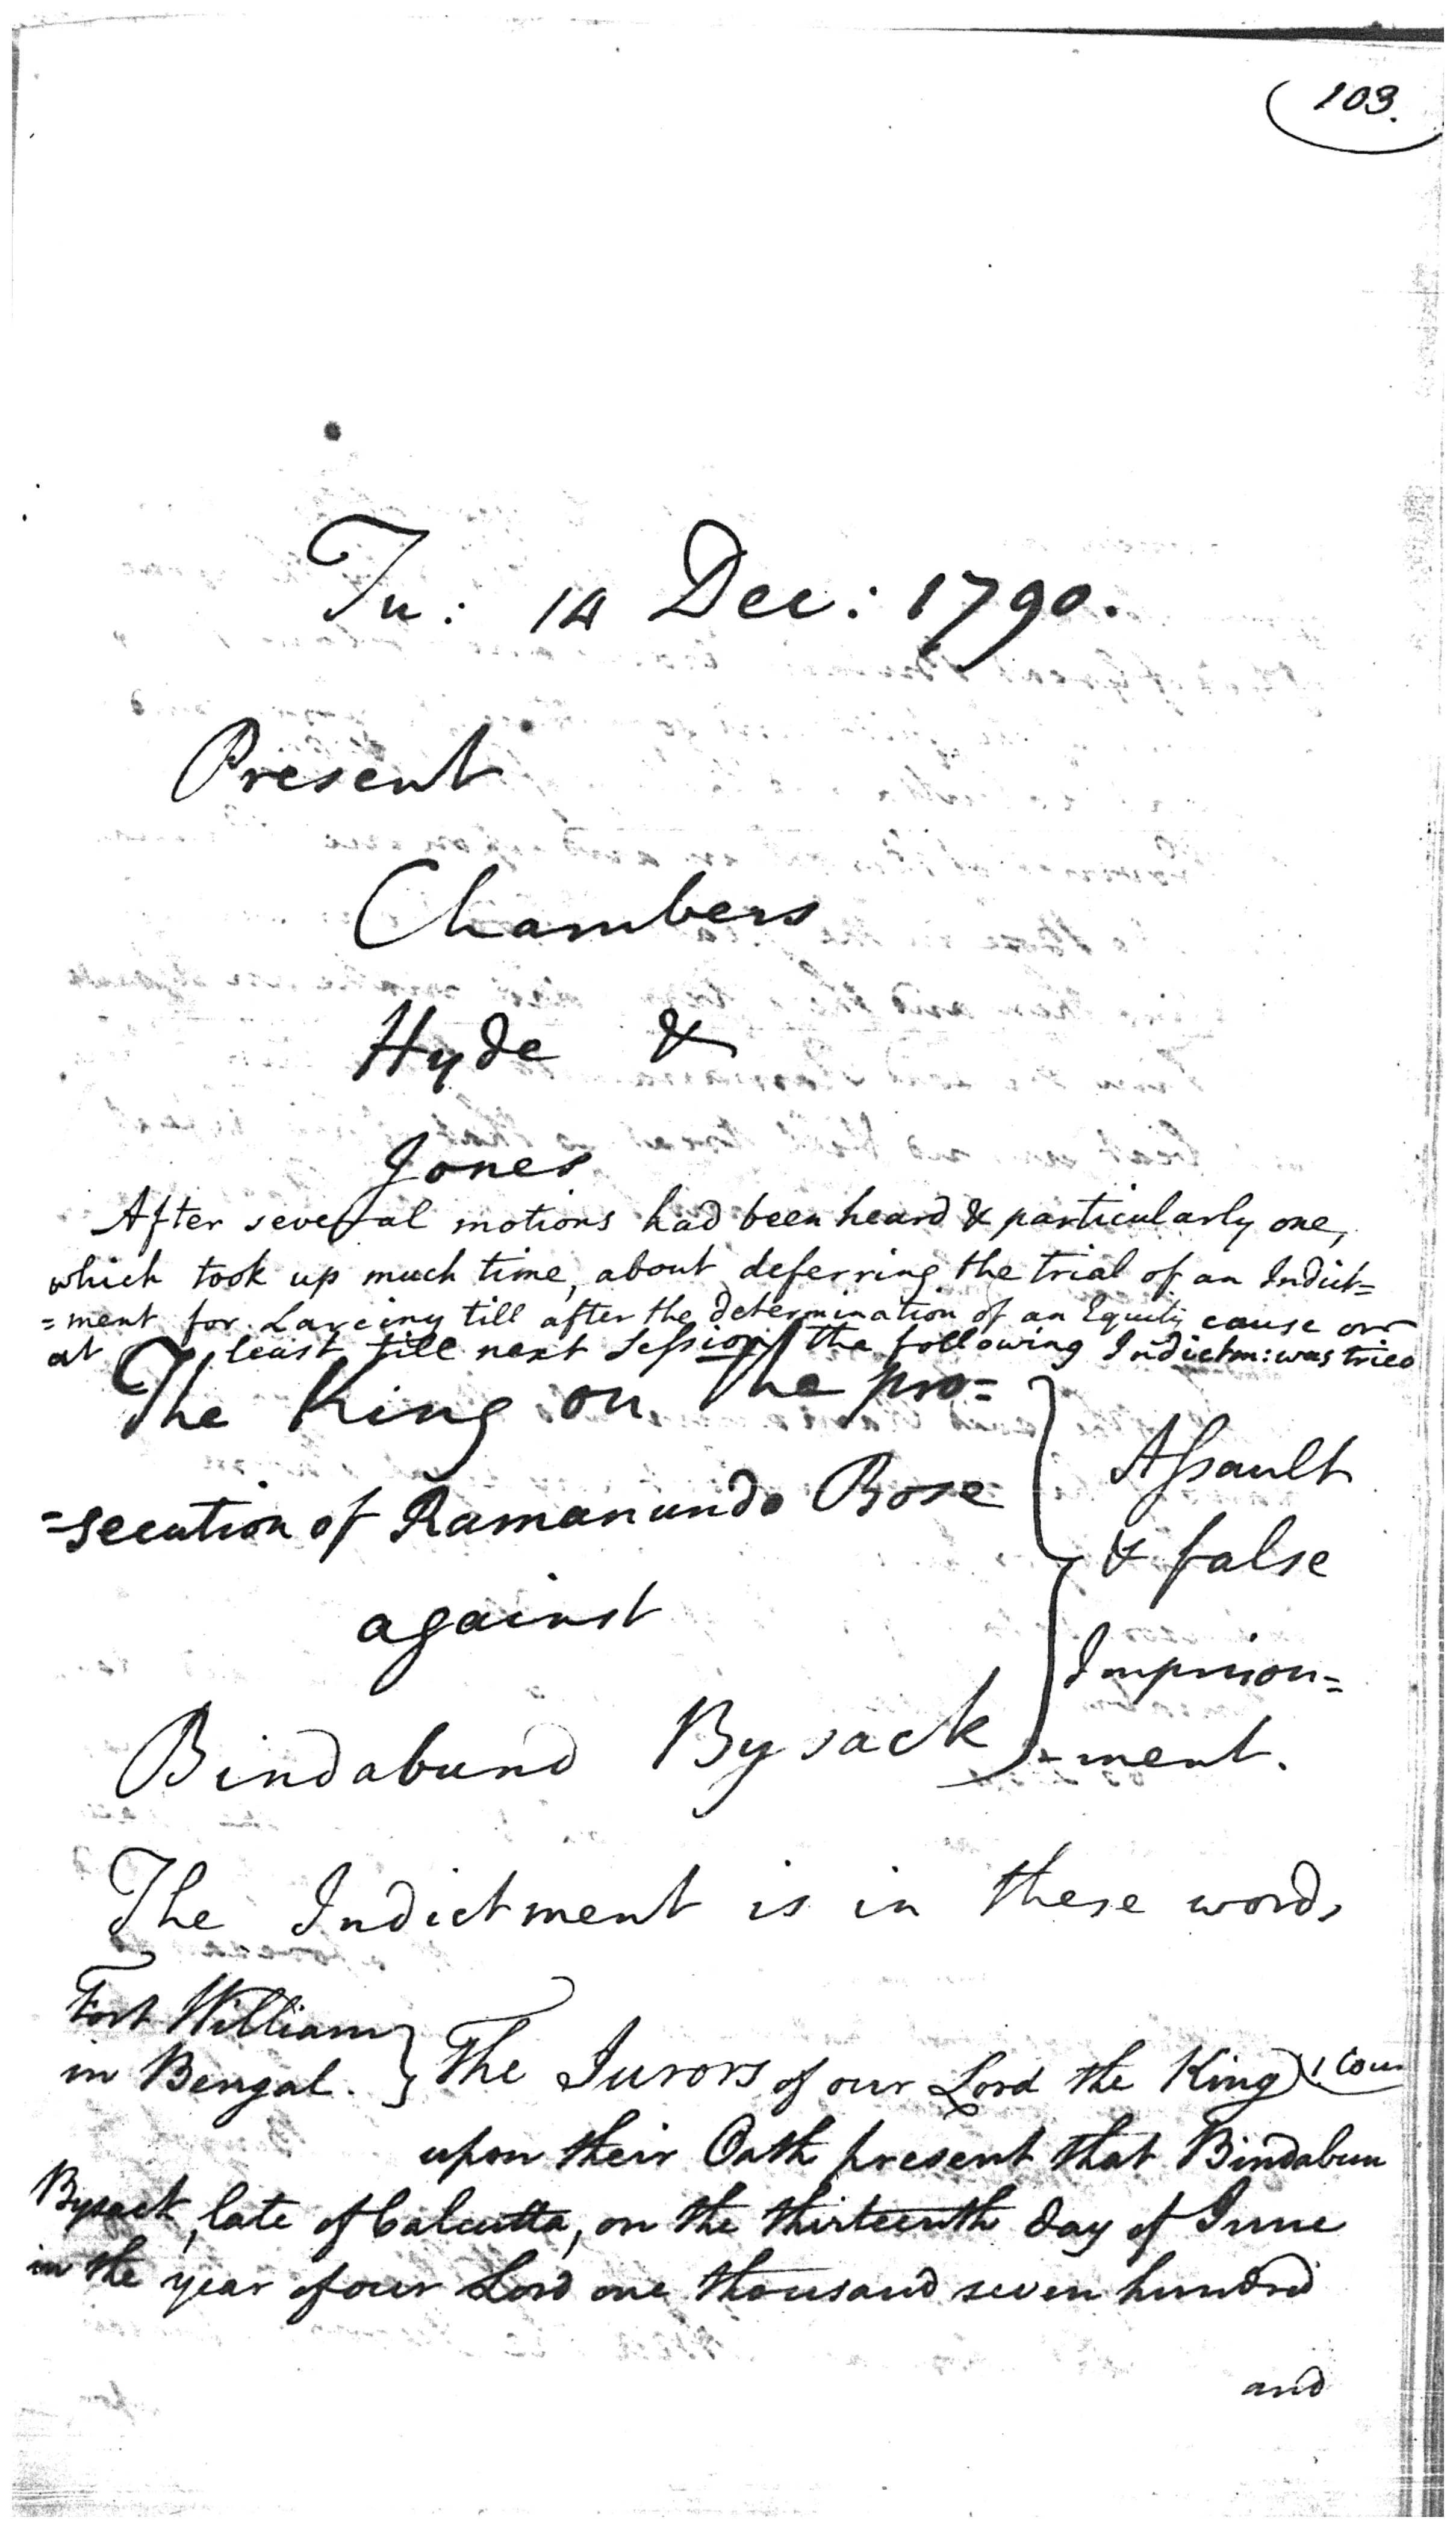 103.
Tu: 14 Dec: 1790.
Present
Chambers
Hyde &
Jones
After several motions had been heard & particularly one,
which took up much time, about deferring the trial of an Indict=
=ment for Larciny till after the determination of an Equity cause or
at least till next Session the following Indictm: was tried
The King on the pro=
=secution of Ramanundo Bose
against
Bindabund Bysack
Assault
& false
Imprison=
=ment.
The Indictment is in these words
Fort William
in Bengal.
The Jurors of our Lord the King 1 Coun
upon their Oath present that Bindabun
Bysack, late of Calcutta, on the thirteenth day of June
in the year of our Lord one thousand seven hundred
and